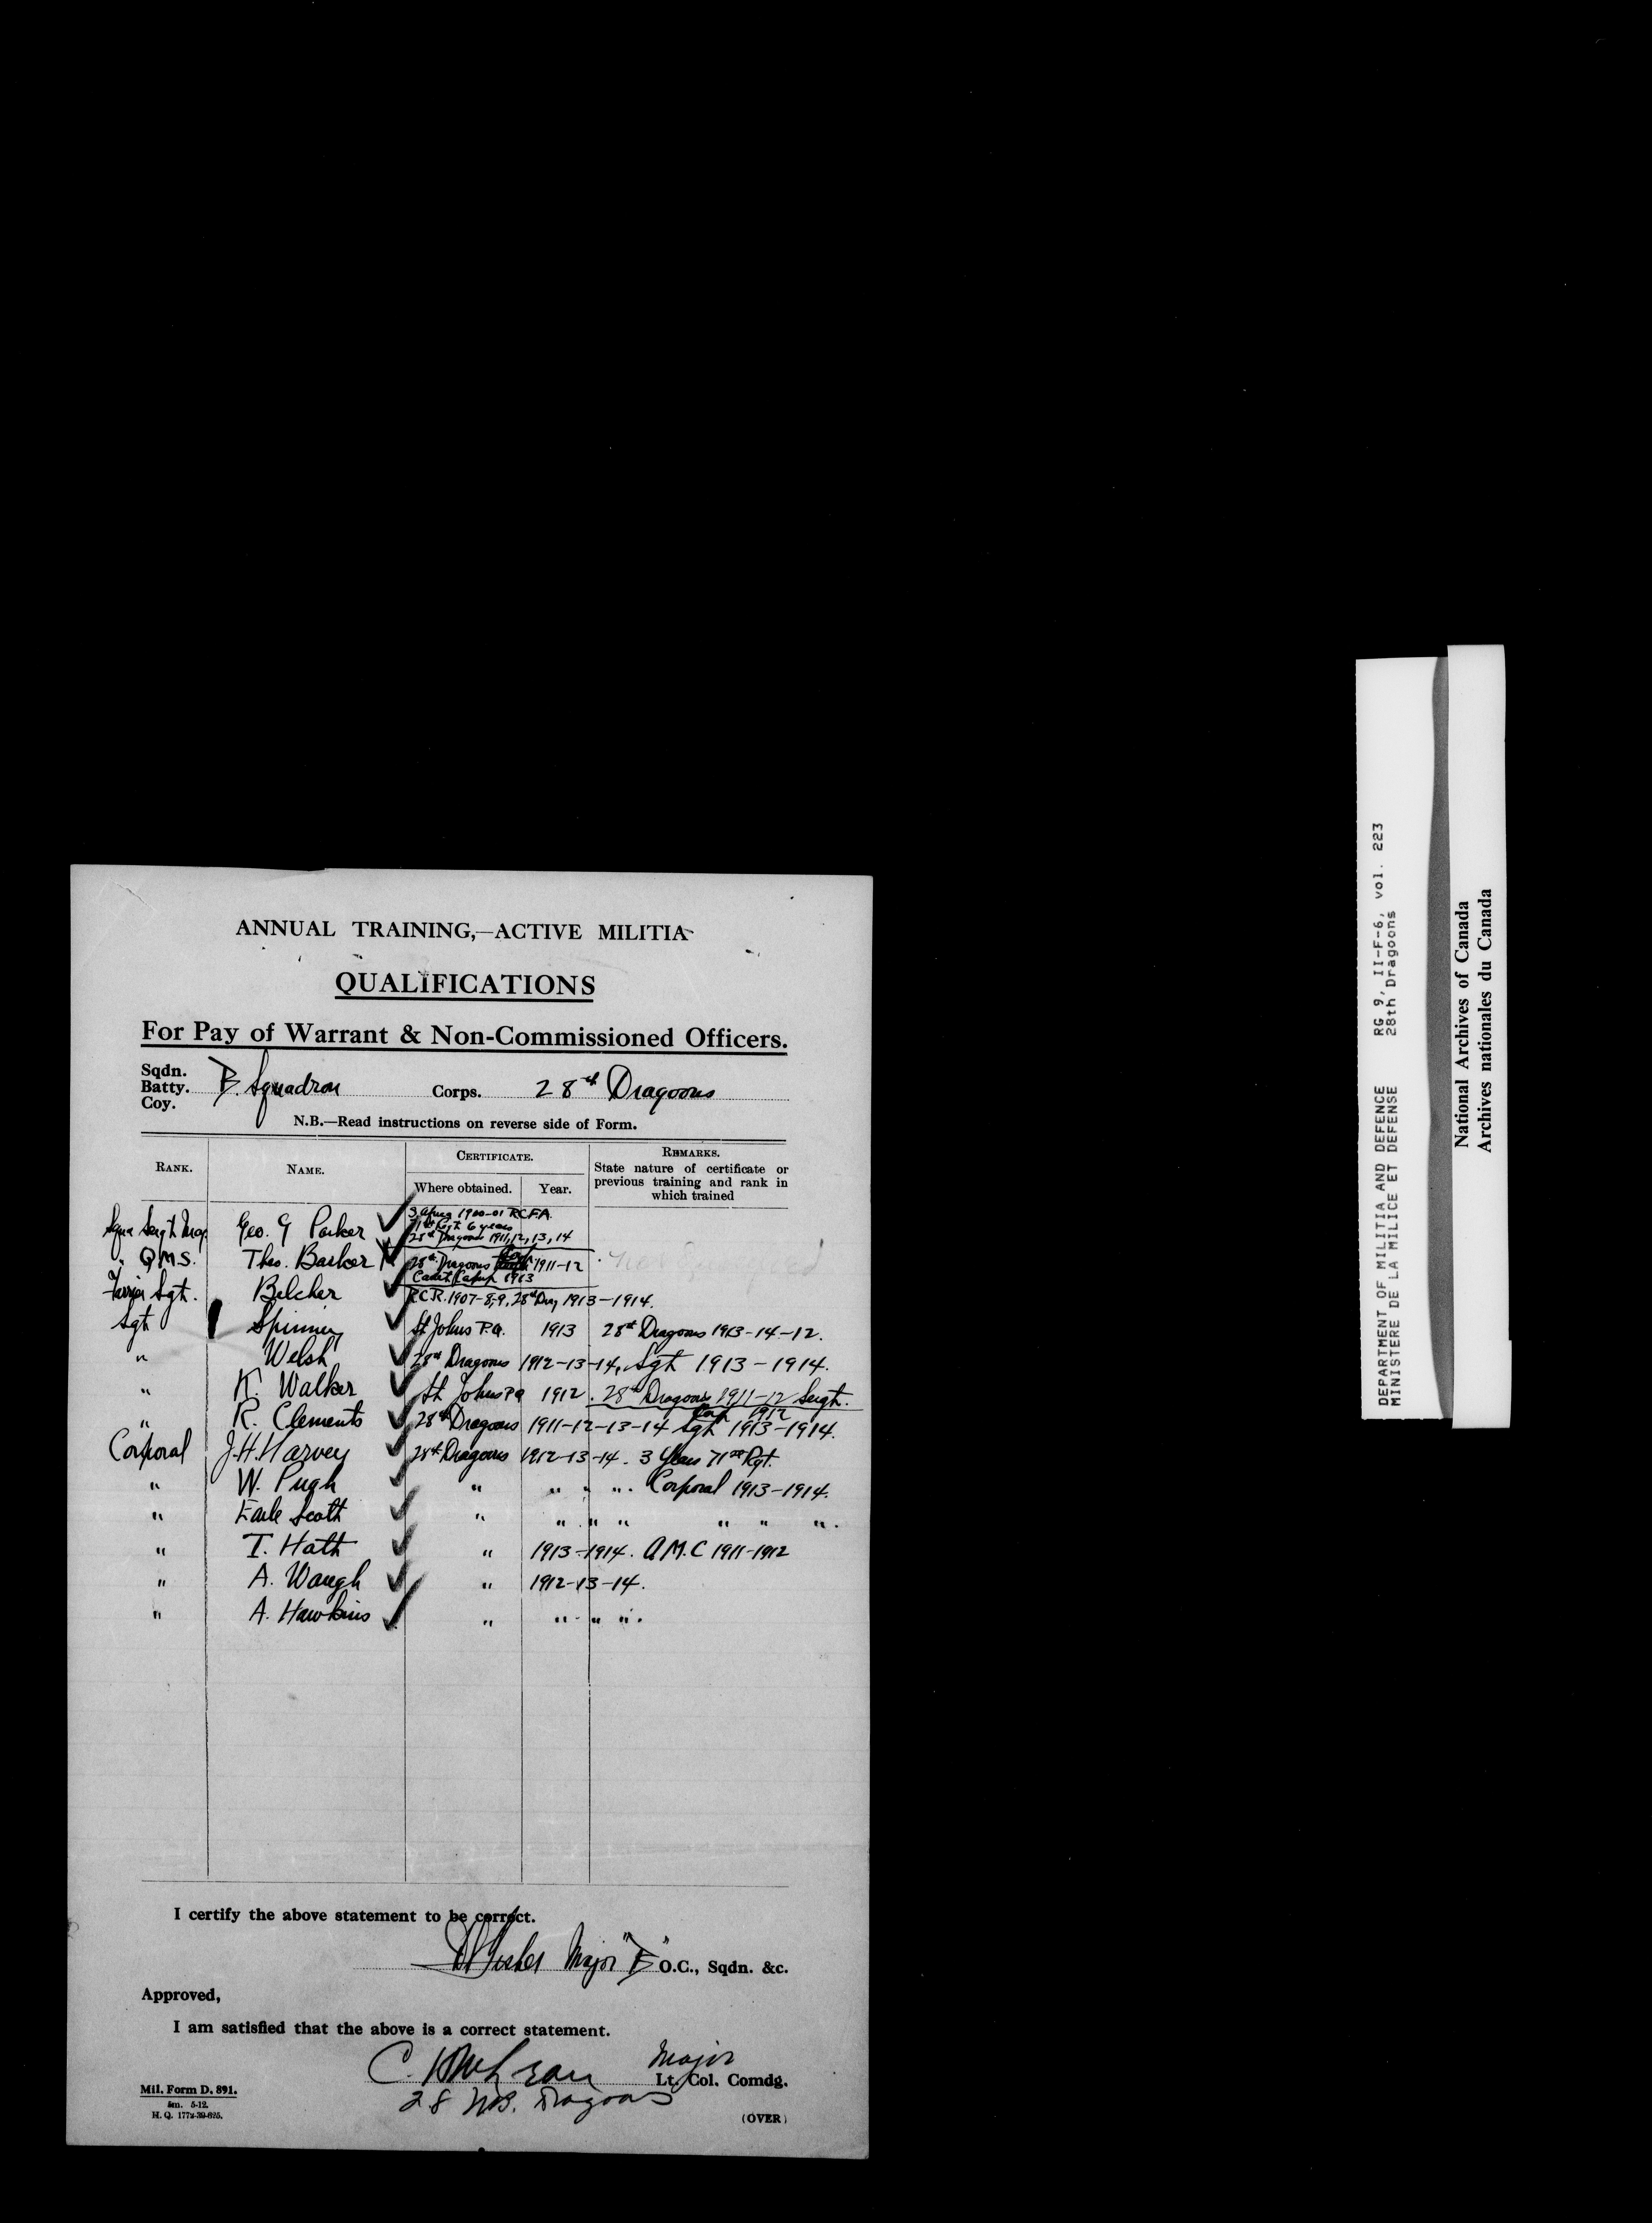 ANNUAL TRAINING,—ACTIVE MILITIA
QUALIFICATIONS
For Pay of Warrant & Non-Commissioned Officers.
Sqdn.
Batty. B. Squadron Corps. 28th Dragoons
Coy.
N.B.—Read instructions on reverse side of Form.
RANK. NAME. CERTIFICATE. REMARKS.
Where obtained. Year. State nature of certificate or previous training and rank in which trained
Squa Sergt Maj. Geo. G Parker ✓ 1900-01 R.C.F.A.
71st Regt 6 years
28th Dragoons 1911, 12, 13, 14
" Q M S. Theo. Barker 28th Dragoons 1911-12 not qualified
Cadet Camp 1913
Farrier Sgt. Belcher ✓ R.C.R. 1907-8, 9. 28th Drag 1913-1914.
Sgt Spinney ✓ St Johns P.Q. 1913 28th Dragoons 1913-14-12.
" Welsh ✓ 28th Dragoons 1912-13-14, Sgt 1913-1914.
" K. Walker ✓ St Johns PQ 1912. 28th Dragoons 1911-12 Sergt.
" R. Clements ✓ 28th Dragoons 1911-12-13-14 Corp 1912 Sgt 1913-1914.
Corporal J.H. Harvey ✓ 28th Dragoons 1912-13-14. 3 Years 71st Rgt.
" W. Pugh ✓ " " " ". Corporal 1913-1914.
" Earle Scott ✓ " " " " " " ".
" T. Hatt ✓ " 1913-1914. A.M.C 1911-1912
" A. Waugh ✓ " 1912-13-14.
" A. Hawkins ✓ " " " ".
I certify the above statement to be correct.
Major "B" O.C., Sqdn. &c.
Approved,
I am satisfied that the above is a correct statement.
Major
C. H. McLean Lt. Col. Comdg.
28 N.B. Dragoons
Mil. Form D. 891.
5m. 5-12.
H. Q. 1772-39-625.
(OVER)
DEPARTMENT OF MILITIA AND DEFENCE RG 9, II-F-6, vol. 223
MINISTERE DE LA MILICE ET DEFENSE 28th Dragoons
National Archives of Canada
Archives nationales du Canada